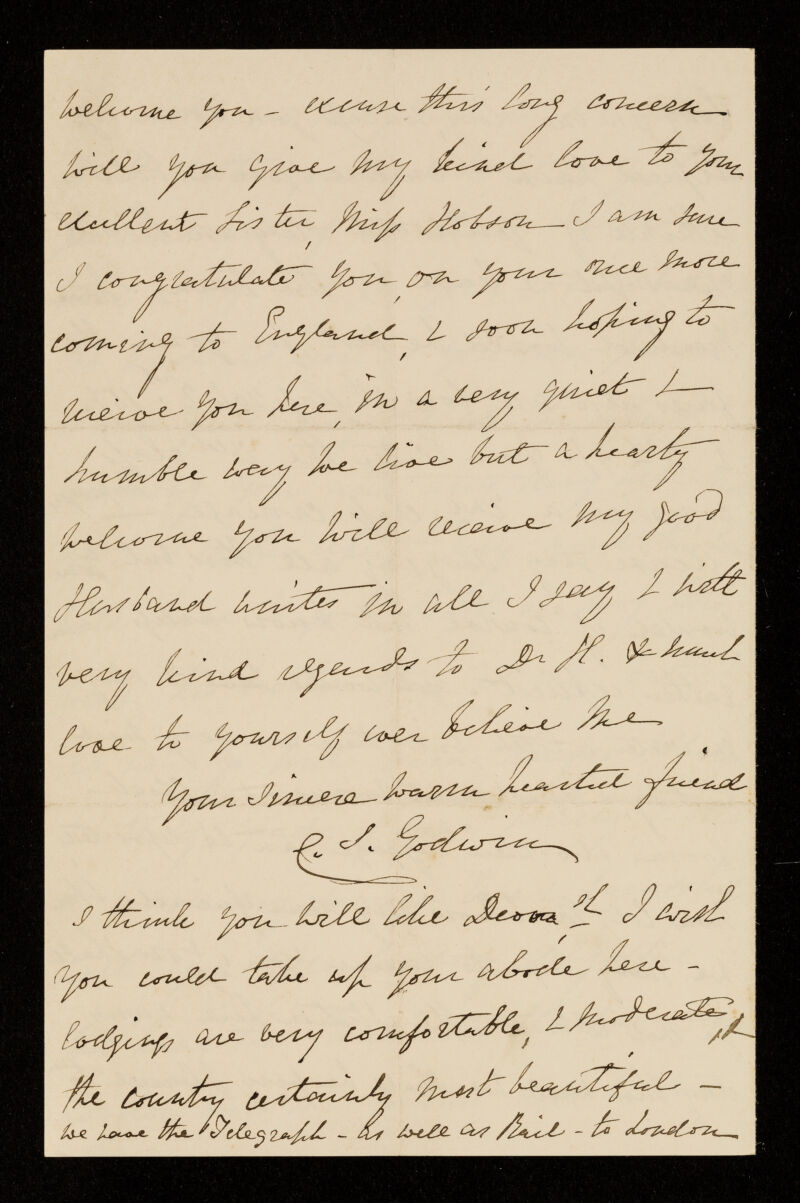 welcome you - excuse this long concern
will you give my kind love to your
excellent Sister, Miss Hobson I am sure
I congratulate you, on your once more
coming to England, & soon hoping to
receive you here, in a very quiet &
humble way we live but a hearty
welcome you will receive my good
Husband unites in all I say & with
very kind regards to Dr H. & much
love to yourself ever believe me
Your Sincere warm hearted friend
C. S. Godwin
I think you will like Devon.st I wish
you could take up your abode here -
lodgings are very comfortable, & moderate, &
the country certainly most beautiful -
we have the Telegraph - as well as Rail - to London